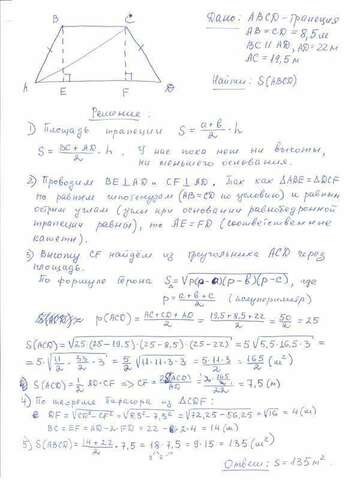 B C
A E F D
Дано: ABCD - трапеция
AB = CD = 8,5м
BC || AD, AD = 22м
AC = 19,5м
Найти: S(ABCD)
Решение:
1) Площадь трапеции S = (a+b)/2 · h
S = (BC + AD)/2 · h. У нас пока нет ни высоты,
ни меньшего основания.
2) Проводим BE ⊥ AD и CF ⊥ AD. Так как ΔABE = ΔDCF
по равным гипотенузам (AB = CD по условию) и равным
острым углам (углы при основании равнобедренной
трапеции равны), то AE = FD (соответственные
катеты).
3) Высоту CF найдём из треугольника ACD через
площадь.
По формуле Герона S△ = √p(p-a)(p-b)(p-c), где
p = (a+b+c)/2 (полупериметр)
p(ACD) = (AC+CD+AD)/2 = (19,5+8,5+22)/2 = 50/2 = 25
S(ACD) = √25·(25-19,5)·(25-8,5)·(25-22) = 5√5,5·16,5·3 =
= 5·√11/2 · 33/2 · 3 = 5/2 √11·11·3·3 = 5·11·3/2 = 165/2 (м²)
S(ACD) = 1/2 AD·CF => CF = 2S(ACD)/AD = 165/22 = 7,5 (м)
4) По теореме Пифагора из ΔCDF:
DF = √CD²-CF² = √8,5²-7,5² = √72,25-56,25 = √16 = 4 (м)
BC = EF = AD - 2·FD = 22 - 2·4 = 14 (м)
5) S(ABCD) = (14+22)/2 · 7,5 = 18·7,5 = 9·15 = 135 (м²)
Ответ: S = 135 м².